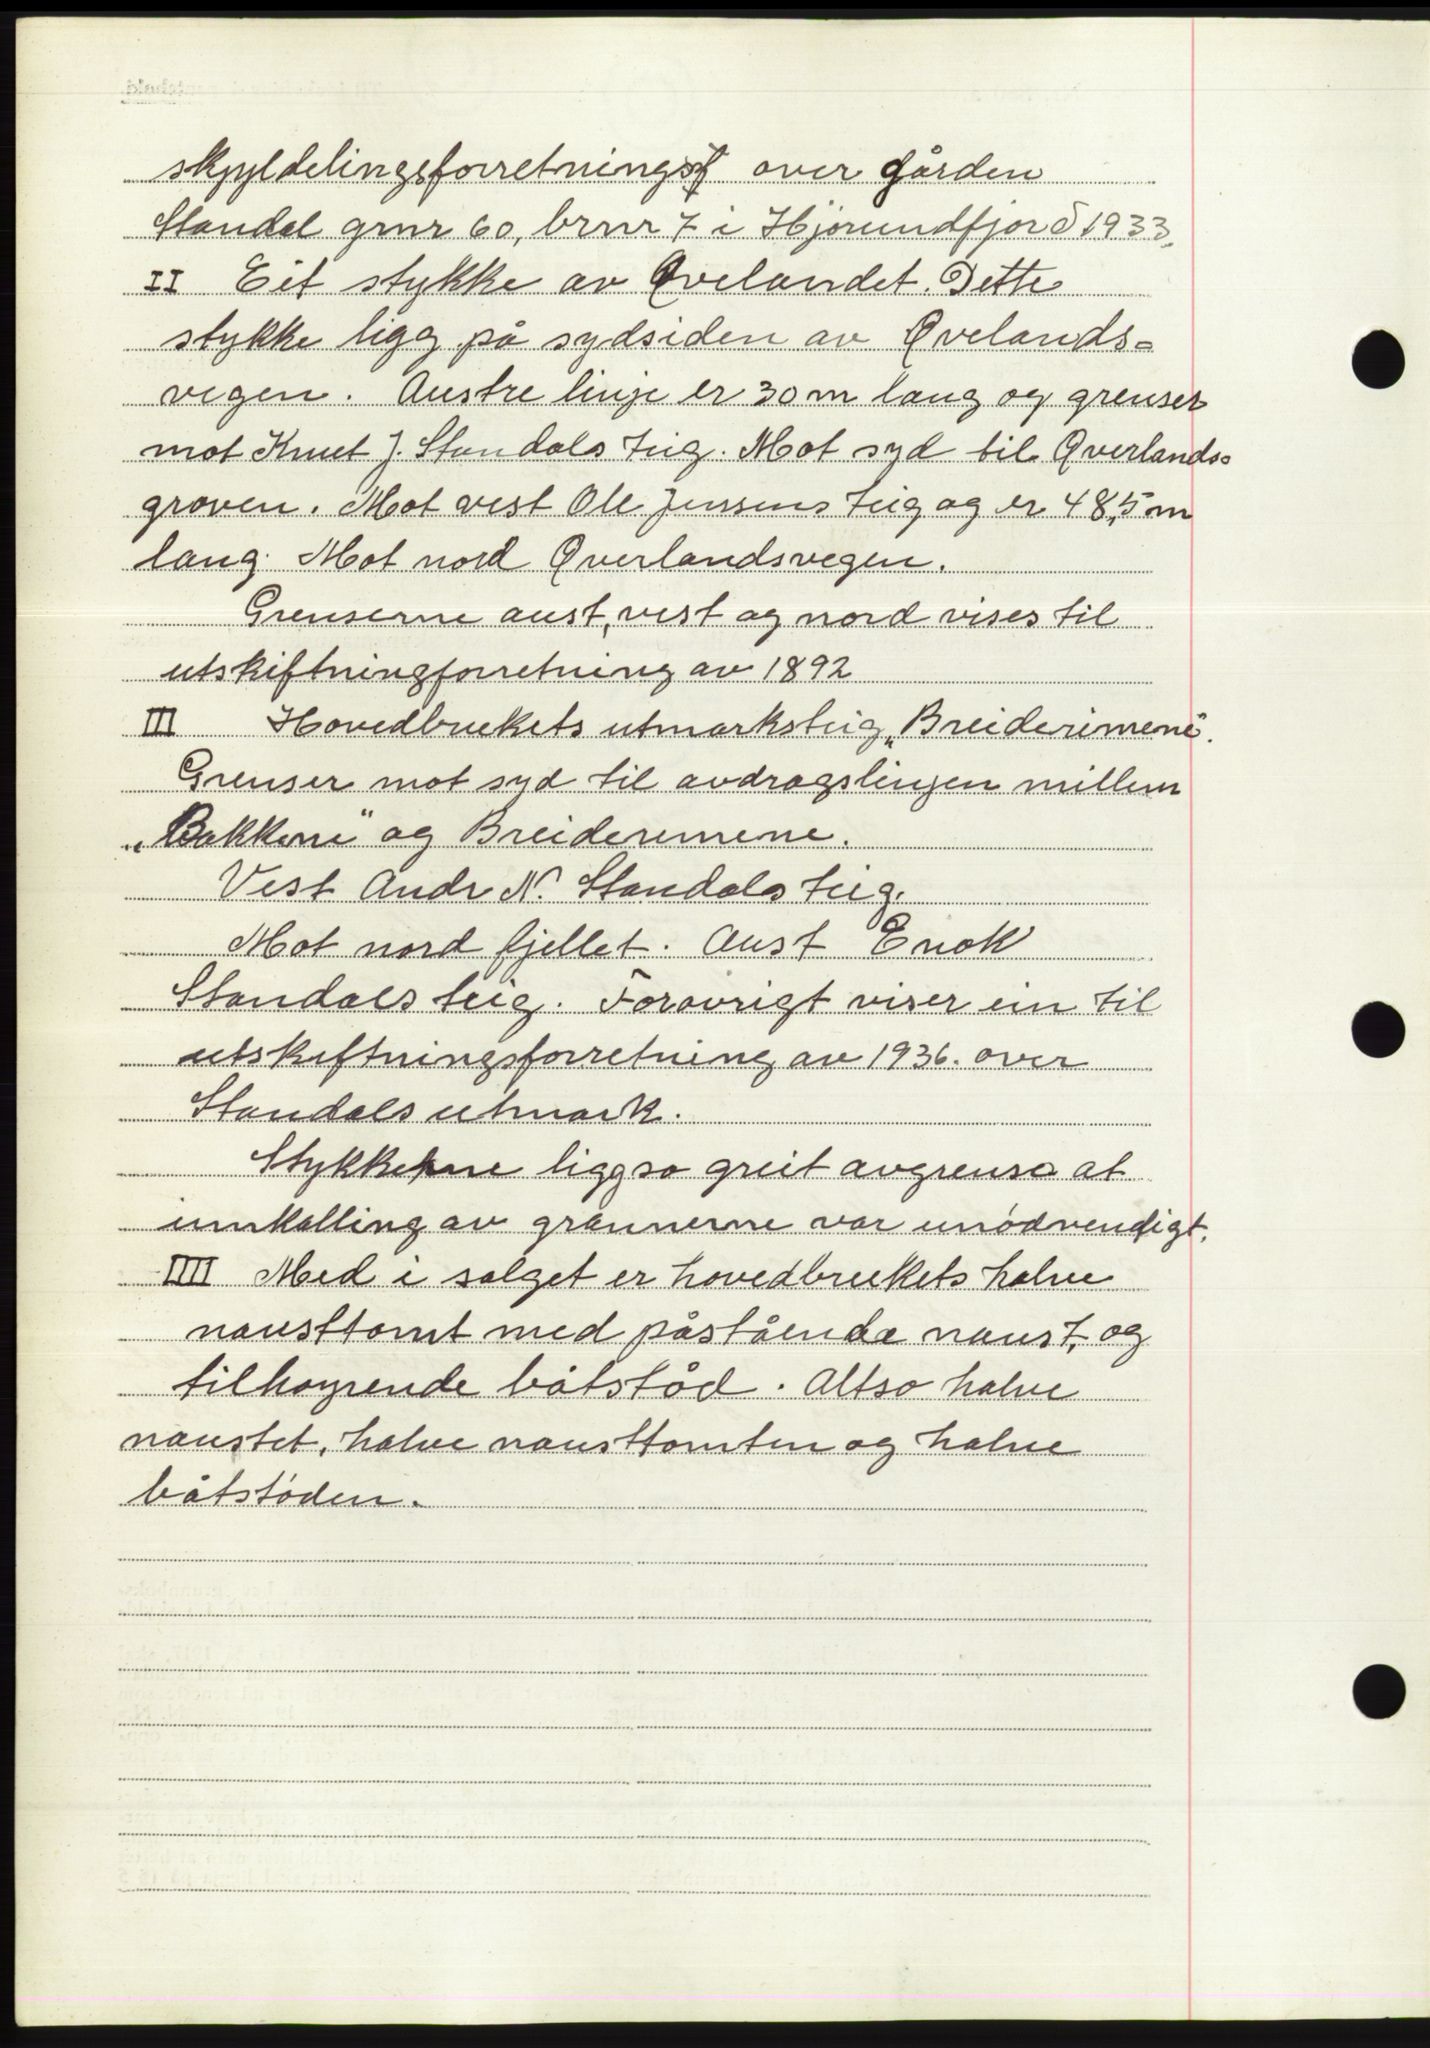 skyyldelingsforretnings over gården
Standal grnr 60, brnr 7 i Hjørundfjord 1933.
II Eit stykke av Qvelandet. Dette
stykke ligg på sydsiden av Qvelands=
vegen. Austre linje er 30 m lang og grenser
mot Knut J. Standals teig. Mot syd til Qverlands=
groven. Mot vest Ole Jenssens teig og er 48,5 m
lang. Mot nord Qverlandsvegen.
Grenserne aust, vest og nord vises til
utskiftningforretning av 1892
III Hovedbrukets utmarksteig „Breiderimene".
Grenser mot syd til avdragslinjen millem
„Bakkene" og Breiderimene.
Vest Andr N. Standals teig.
Mot nord fjellet. Aust Enok
Standals teig. Forøvrigt viser ein til
utskiftningsforretning av 1936. over
Standals utmark.
Stykkerne ligg so greit avgrensa at
innkalling av grannerne var unødvendigt.
IIII Med i salget er hovedbrukets halve
nausttomt med påstående naust, og
tilhøyrende båtstød. Altso halve
naustet, halve nausttomten og halve
båtstøden.